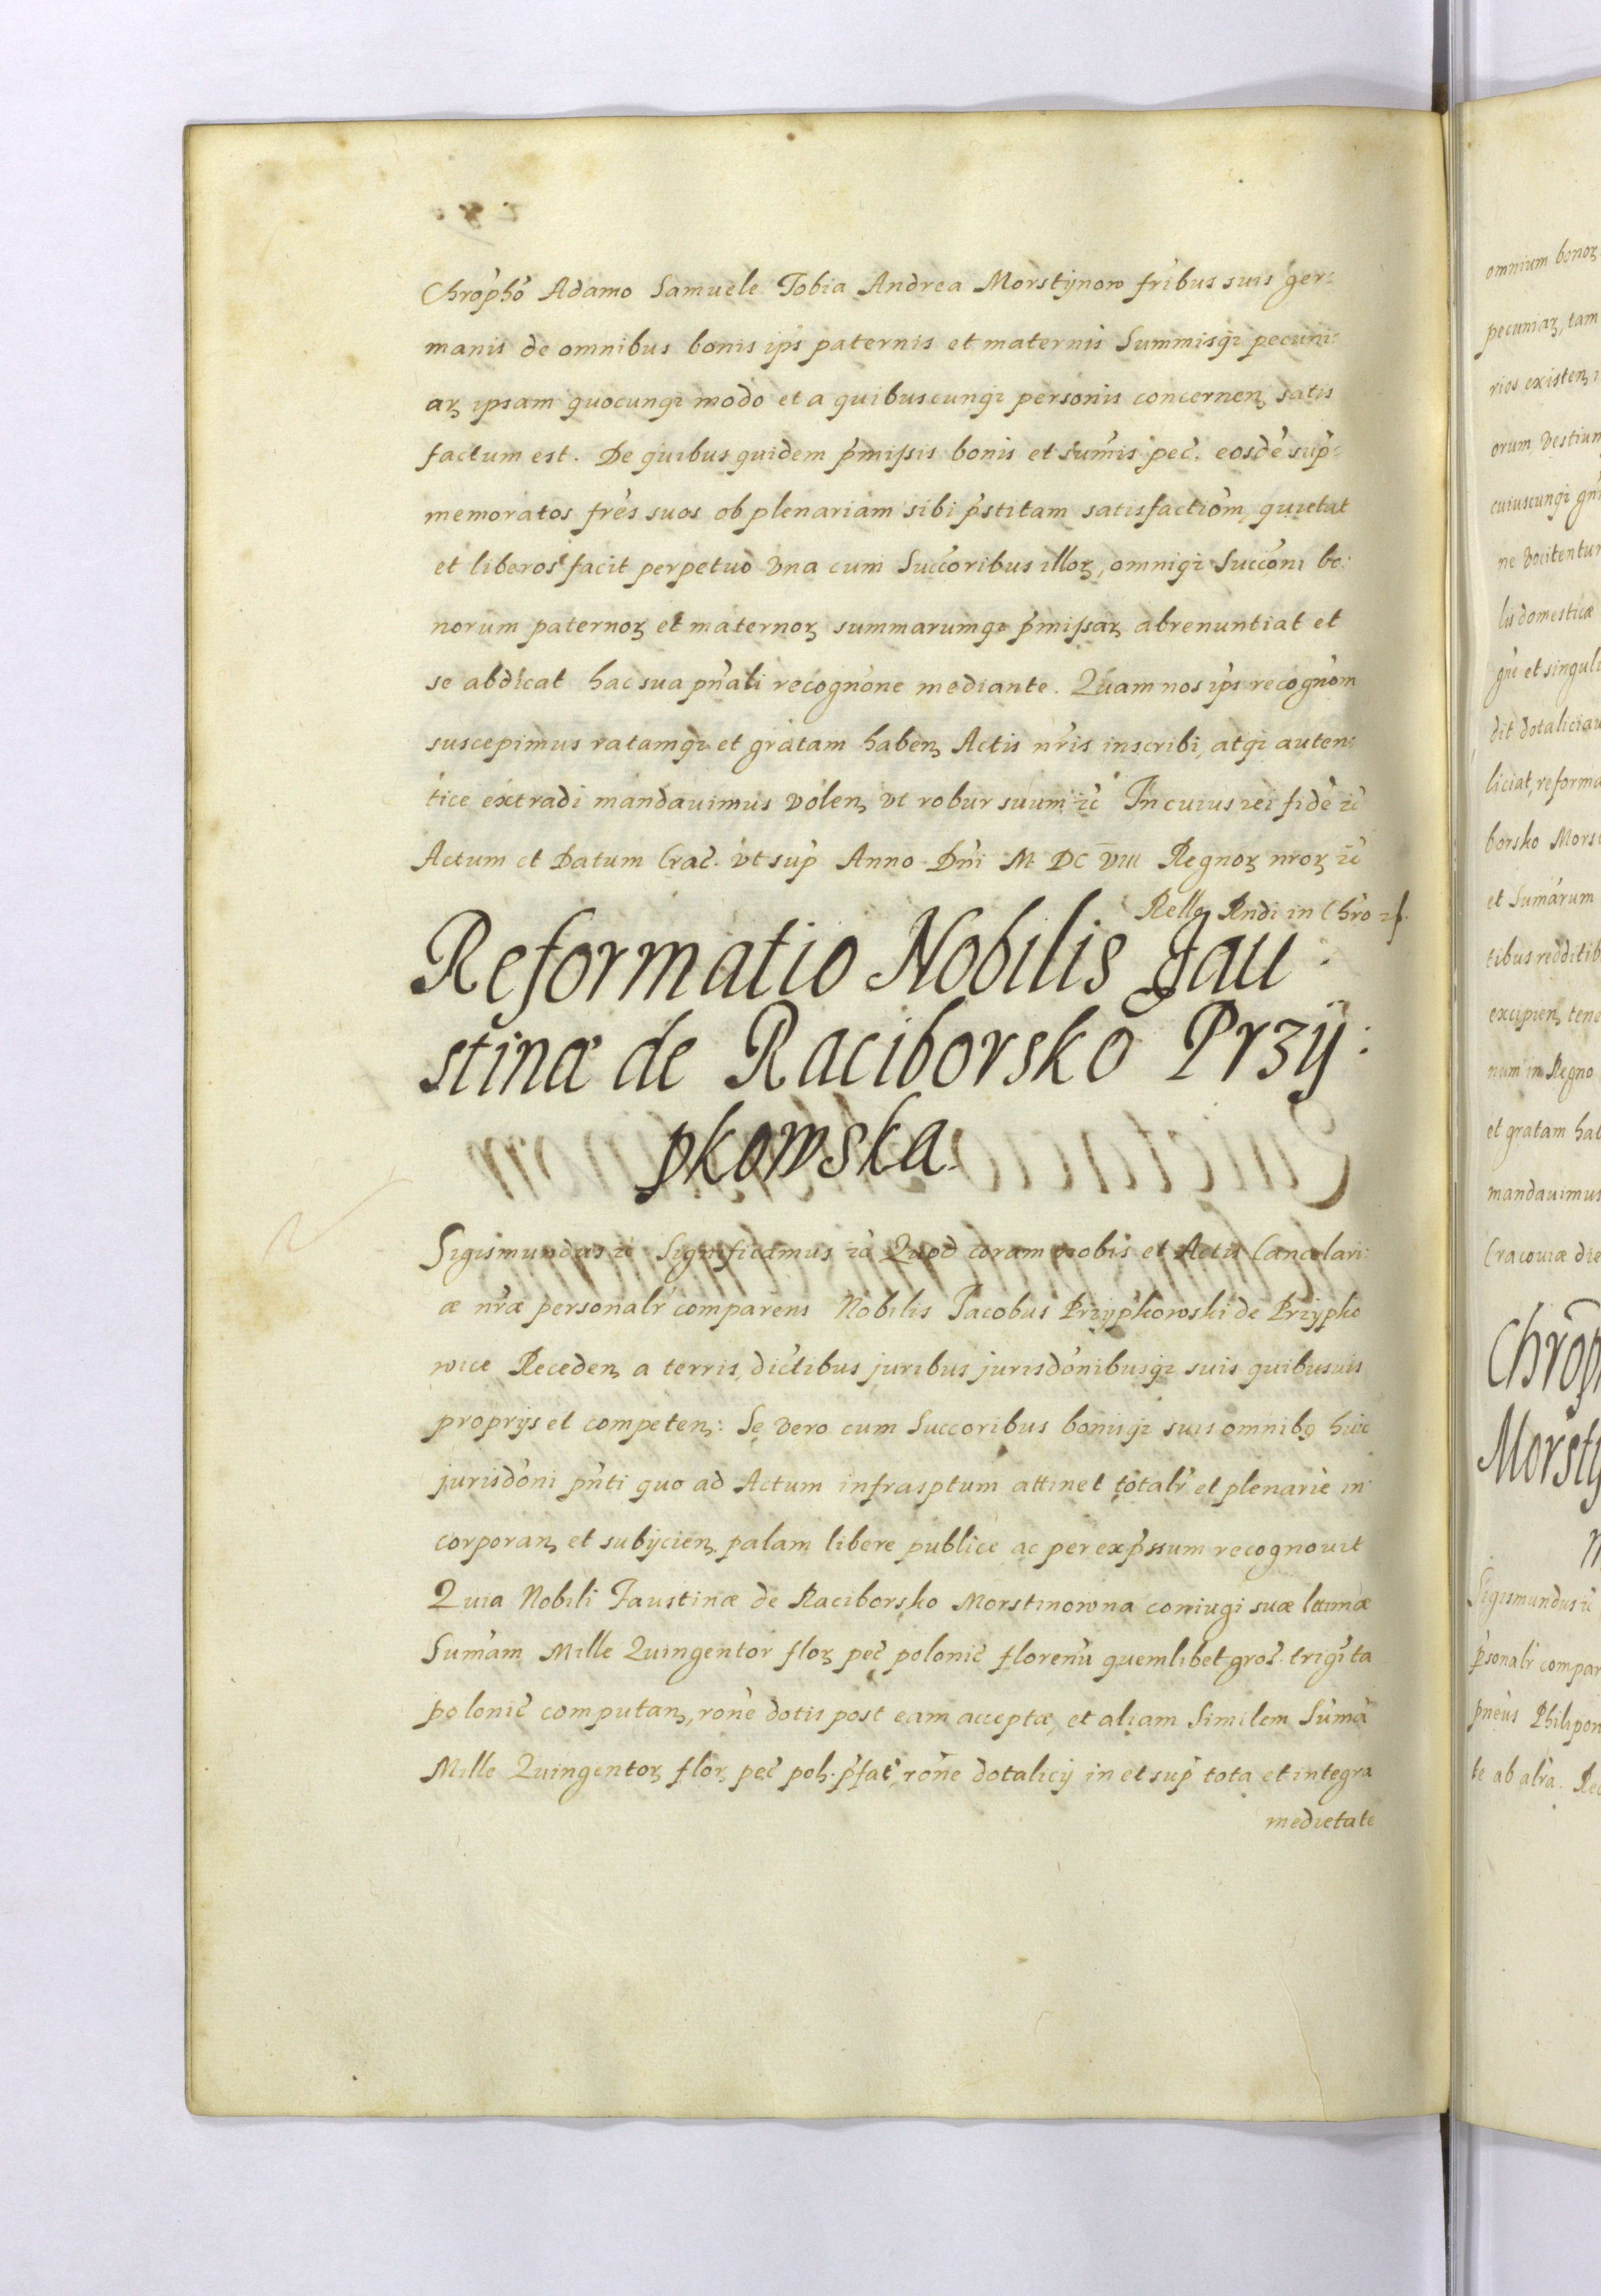 Chrôphô Adamo Samuele Tobia Andrea Morstÿnow frîbus suis ger:
manis de omnibus bonis ip̃s paternis et maternis Summisqꝫ pecuni:
aꝝ ipsam quocunqꝫ modo et a quibuscunqꝫ personis concernenꝫ satis
factum est. De quibus quidem p̃missis bonis et sum̃is pec̃. eosdẽ sup̃:
memoratos frẽs suos ob plenariam sibi p̃stitam satisfactiõm quietat
et liberos facit perpetuo vna cum Succ̃oribus illoꝝ, omniqꝫ Succõni bo:
norum paternoꝝ et maternoꝝ summarumqꝫ p̃missaꝝ abrenuntiat et
se abdicat hac sua pñali recognõne mediante. Quam nos ip̃s recognõm
suscepimus ratamqꝫ et gratam habenꝫ Actis nr̃is inscribi, atqꝫ auten:
tice extradi mandauimus volenꝫ vt robur suum ꝛc̃ In cuius rei fidẽ ꝛc̃
Actum et Datum Crac̃. vt sup̃ Anno Dñi M DC VIII Regnoꝝ nroꝝ ꝛc̃
Rello Rndi in Chro ꝛf.
Reformatio Nobilis Fau:
stinæ de Raciborsko Przÿ:
pkowska.
Sigismundus ꝛc̃ Significamus ꝛc̃ Quod coram nobis et Actis Cancelari:
æ nr̃æ personalr̃ comparens Nobilis Jacobus Przÿpkowski de Przÿpko
wice Recedenꝫ a terris, dictibus juribus jurisdõnibusqꝫ suis quibusuis
proprijs et competenꝫ: Se vero cum Succoribus bonisqꝫ suis omnibꝫ huic
jurisdõni pñti quo ad Actum infrasptum attinet totalr̃ et plenarie in
corporanꝫ et subijcienꝫ palam libere publice ac per exp̃ssum recognouit
Quia Nobili Faustinæ de Raciborsko Morstinowna coniugi suæ ltimæ
Sum̃am Mille Quingentor floꝝ pec̃ polonic̃ florenũ quemlibet gros̃. trigĩta
polonic̃ computanꝫ, rõne dotis post eam acceptæ, et aliam Similem Sum̃ã
Mille Quingentoꝝ floꝝ pec̃ poh. p̃fac̃, rõne dotalicij in et sup̃ tota et integra
medietate
omnium bonoꝝ
pecuniaꝝ, tam
rios existenꝫ
orum vestium
cuiuscunqꝫ gñi
ne vocitentur
lis domesticæ
gñe et singuli
dit dotaliciau
liciat, reforma
borsko Mors
et Sumarum
tibus redditib
excipienꝫ tene
num in Regno
et gratam hab
mandauimus
Cracouiæ die
Chrôp
Morstÿ
Sigismundus ꝛc̃
p̃sonalr̃ compar
pñeus Philipow
te ab alr̃a. Rec